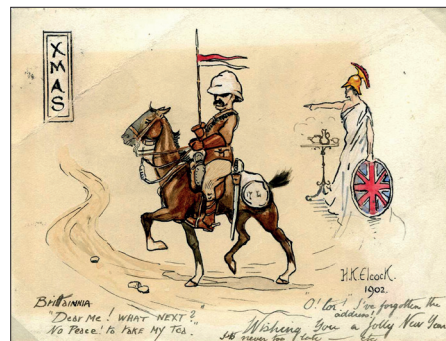 XMAS
H.K.Elcock.
1902.
BRITTANNIA
"DEAR ME! WHAT NEXT?
NO PEACE! TO TAKE MY TEA."
"O! lor'! I've forgotten the
address!"
Wishing You a Jolly New Year
never too late